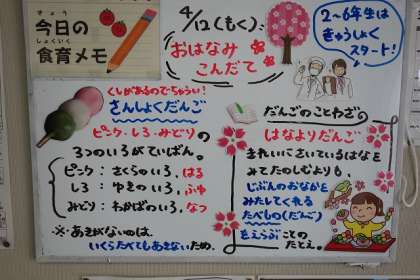 きょう
今日の
しょくいく
食育メモ
4/12(もく):
おはなみ
こんだて
2～6年生は
きゅうしょく
スタート!
くしがあるのでちゅうい!
さんしょくだんご
ピンク・しろ・みどりの
3つのいろがていばん。
ピンク:さくらのいろ,はる
しろ:ゆきのいろ,ふゆ
みどり:わかばのいろ,なつ
※あきがないのは、
いくらたべてもあきないため。
だんごのことわざ
はなよりだんご
きれいにさいているはなを
みてたのしむよりも、
じぶんのおなかを
みたしてくれる
たべもの(だんご)
をえらぶことの
たとえ。